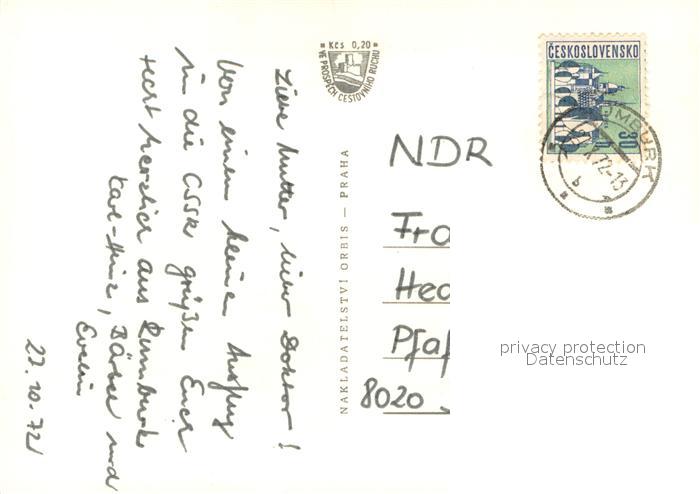 Liebe Mutter, lieber Doktor!
Von einem kleinen Ausflug
in die CSSR grüßen Euch
recht herzlich aus Rumburk
Karl-Heinz, Bärbel und
Evelin
22.10.72
Kčs 0,20
VE PROSPĚCH CESTOVNÍHO RUCHU
NAKLADATELSTVÍ ORBIS — PRAHA
ČESKOSLOVENSKO
30 h
72-13
b
NDR
Fra
Hed
Pfaf
8020
privacy protection
Datenschutz